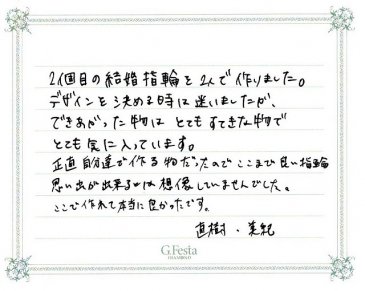 2個目の結婚指輪を2人で作りました。
デザインを決める時は迷いましたが、
できあがった物は とてもすてきな物で
とても気に入っています。
正直 自分達で作る物だったので ここまで良い指輪
思い出が出来るとは想像していませんでした。
ここで作れて本当に良かったです。
直樹・美紀
G.Festa